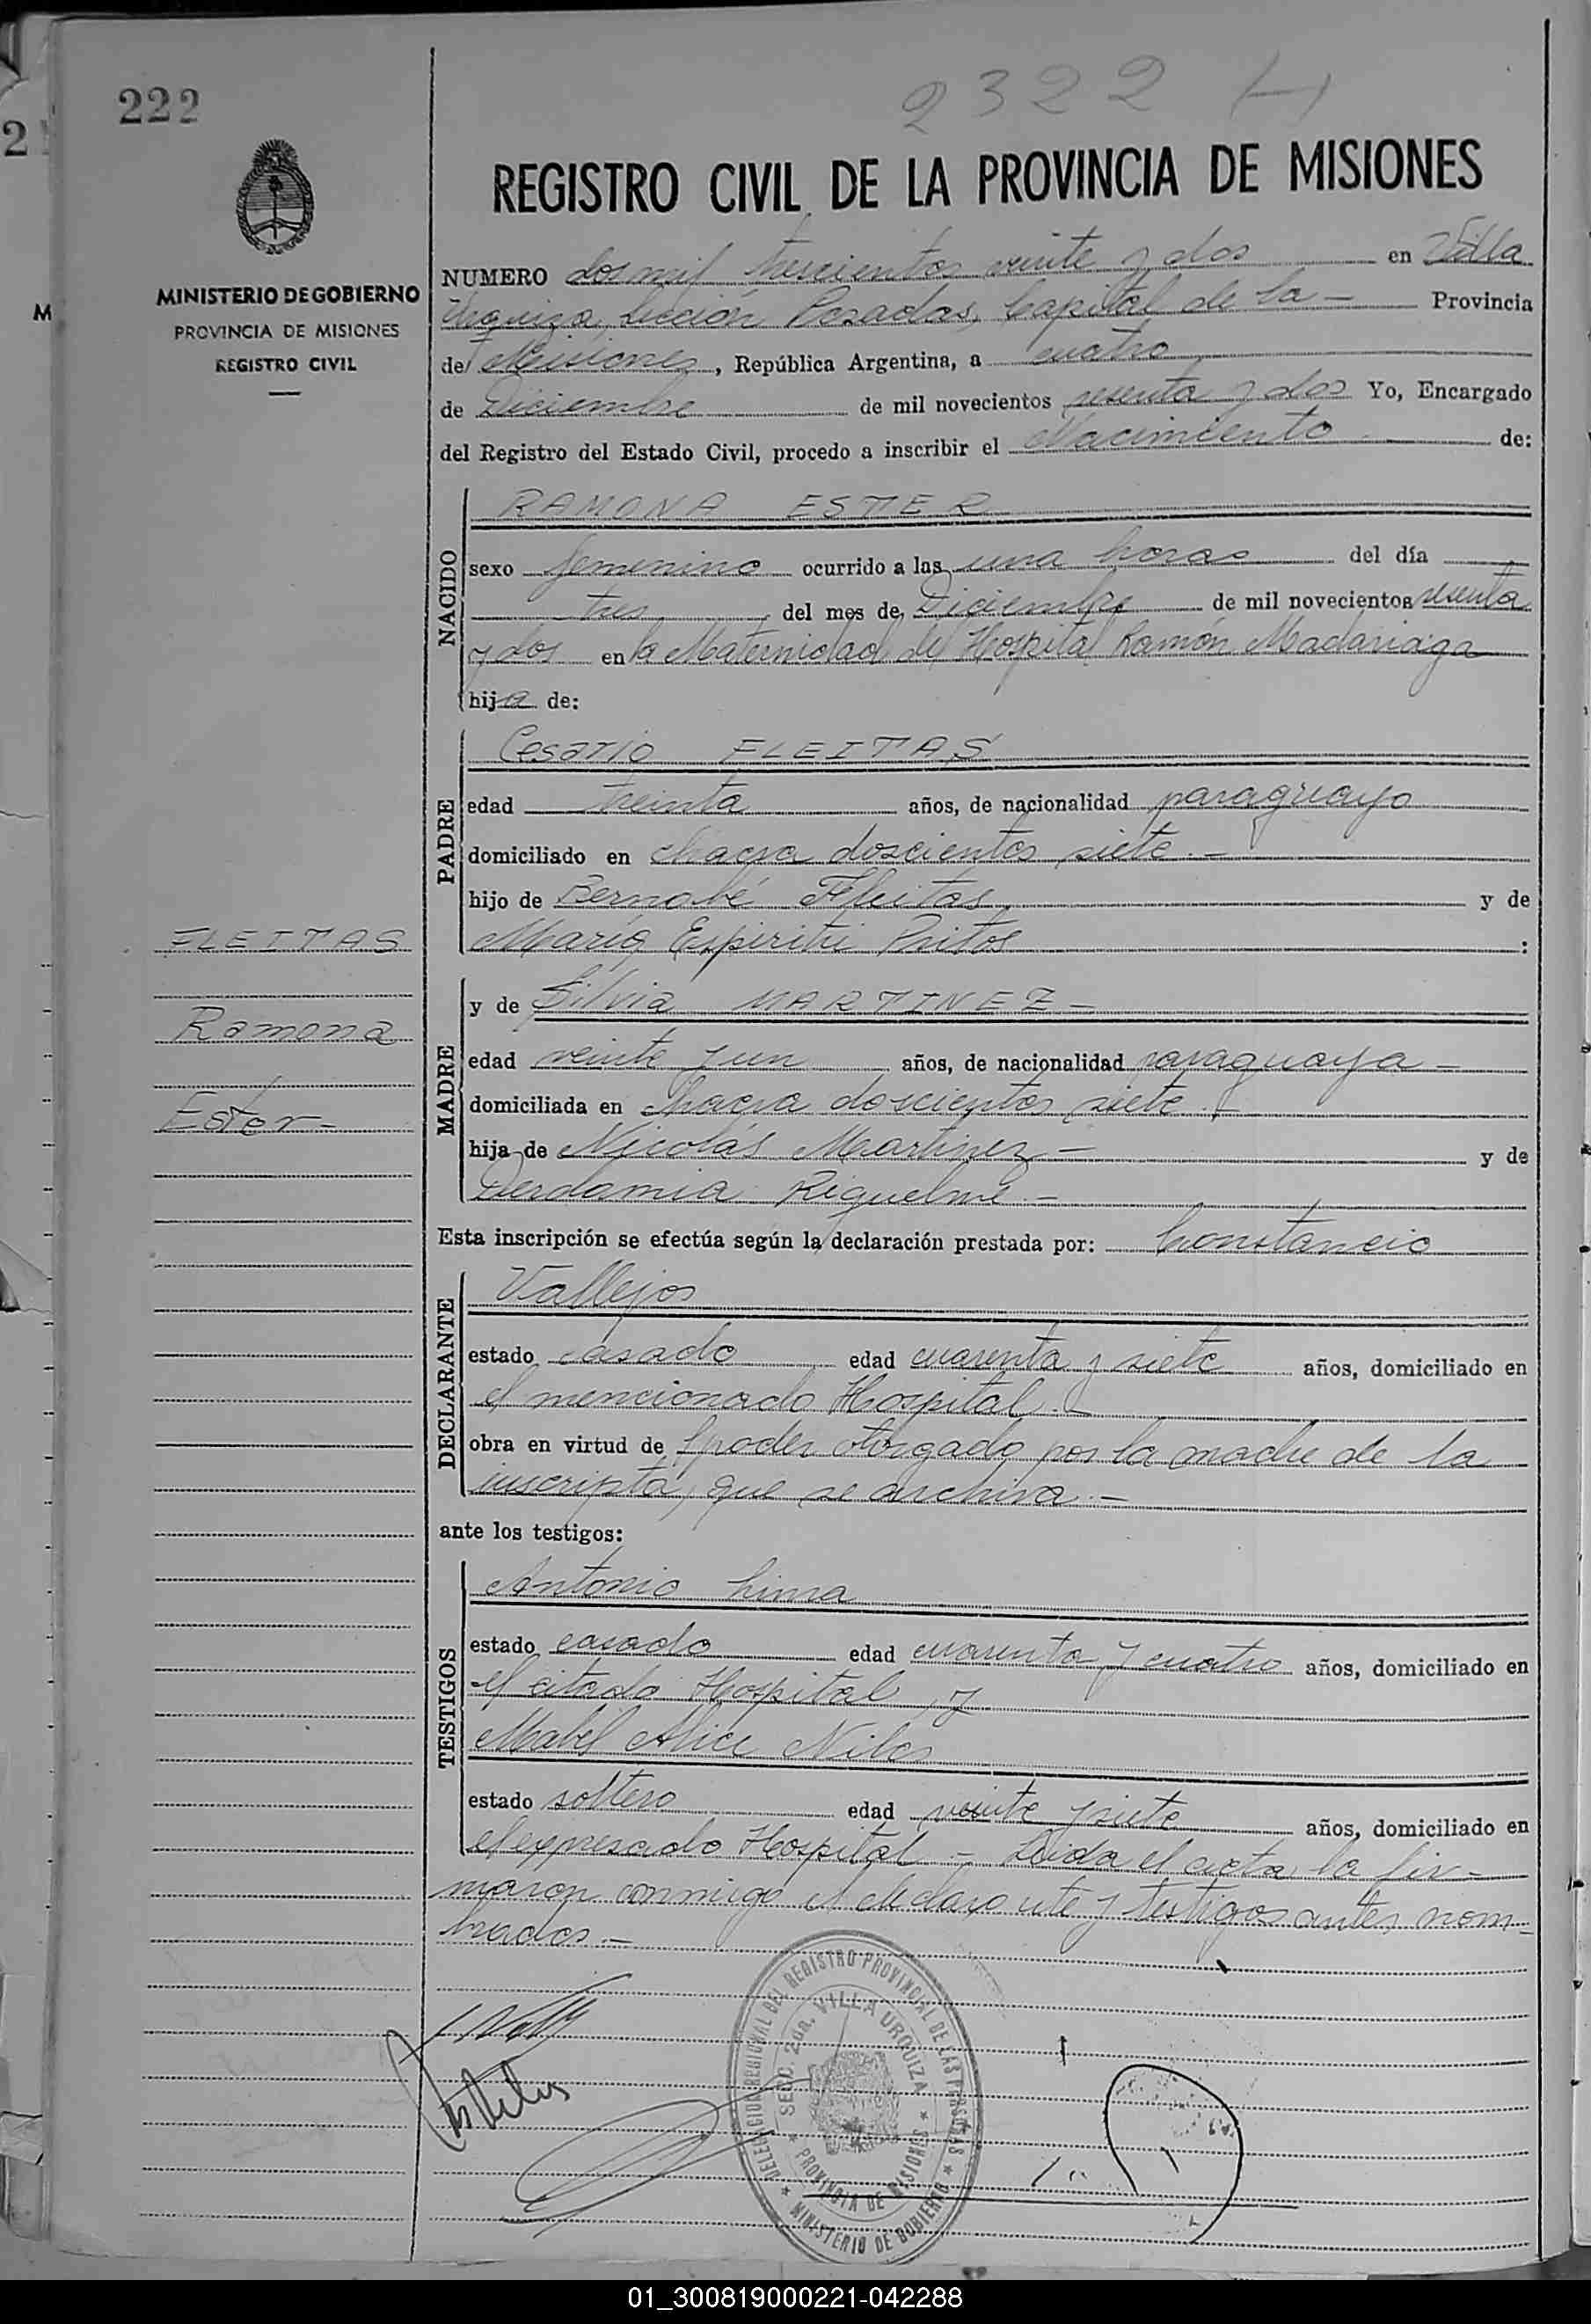 222
2322 (-)
2
M
MINISTERIO DE GOBIERNO
PROVINCIA DE MISIONES
REGISTRO CIVIL
REGISTRO CIVIL DE LA PROVINCIA DE MISIONES
NUMERO dos mil trescientos veinte y dos en Villa
Urquiza, Sección Posadas, Capital de la — Provincia
de Misiones, República Argentina, a cuatro
de Diciembre de mil novecientos sesenta y dos Yo, Encargado
del Registro del Estado Civil, procedo a inscribir el Nacimiento de:
NACIDO
RAMONA ESTER
sexo femenino ocurrido a las una horas del día
tres del mes de Diciembre de mil novecientos sesenta
y dos en la Maternidad del Hospital Ramón Madariaga
hija de:
PADRE
Cesario FLEITAS
edad treinta años, de nacionalidad paraguayo
domiciliado en chacra doscientos siete.-
hijo de Bernabé Fleitas y de
María Espíritu :
FLEITAS
Ramona
Ester-
MADRE
y de Silvia MARTINEZ -
edad veinte y un años, de nacionalidad paraguaya -
domiciliada en Chacra doscientos siete.-
hija de Nicolás Martinez - y de
Riquelme -
Esta inscripción se efectúa según la declaración prestada por: Constancio
DECLARANTE
Vallejos
estado casado edad cuarenta y siete años, domiciliado en
el mencionado Hospital.-
obra en virtud de poder otorgado por la madre de la
inscripta, que se archiva.-
ante los testigos:
TESTIGOS
Antonio Lima
estado casado edad cuarenta y cuatro años, domiciliado en
el citado Hospital, y
Mabel Alice
estado soltera edad veinte y siete años, domiciliado en
el expresado Hospital - Leída el acta, la fir-
maron conmigo el declarante y testigos antes nom-
brados.-
DELEGACION REGIONAL DEL REGISTRO PROVINCIAL DE LAS PERSONAS
SECC. 2da. VILLA URQUIZA
PROVINCIA DE MISIONES
MINISTERIO DE GOBIERNO
01_300819000221-042288